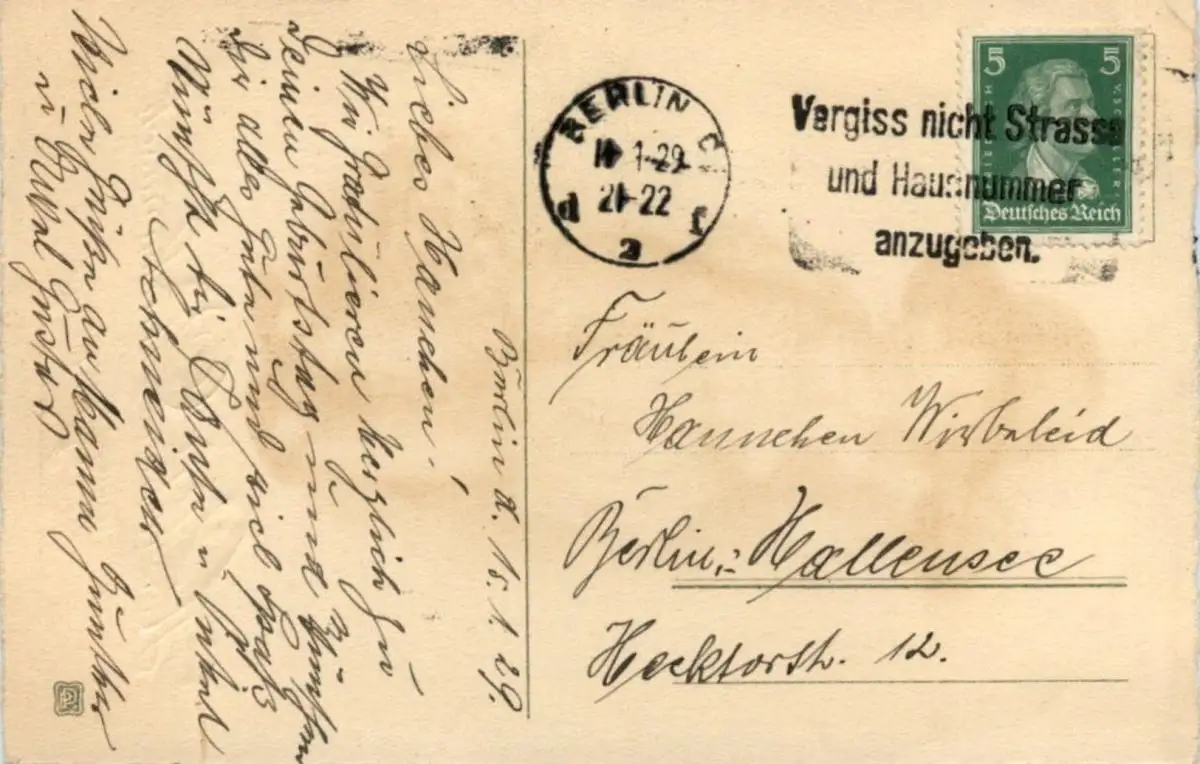 Berlin d. 15.1.29.
Liebes Hannchen!
Wir gratulieren herzlich zu
Deinem Geburtstag und wünschen
Dir alles Gute und viel Spaß
Wünscht dir Onkel
Schneider
Viele Grüße an Mama Günther
u. Gustav
BERLIN C
1-29
21-22
2
Vergiss nicht Strasse
und Hausnummer
anzugeben.
5 5
Deutsches Reich
Fräulein
Hannchen Wirbeleid
Berlin-Hallensee
Hecktorstr. 12.